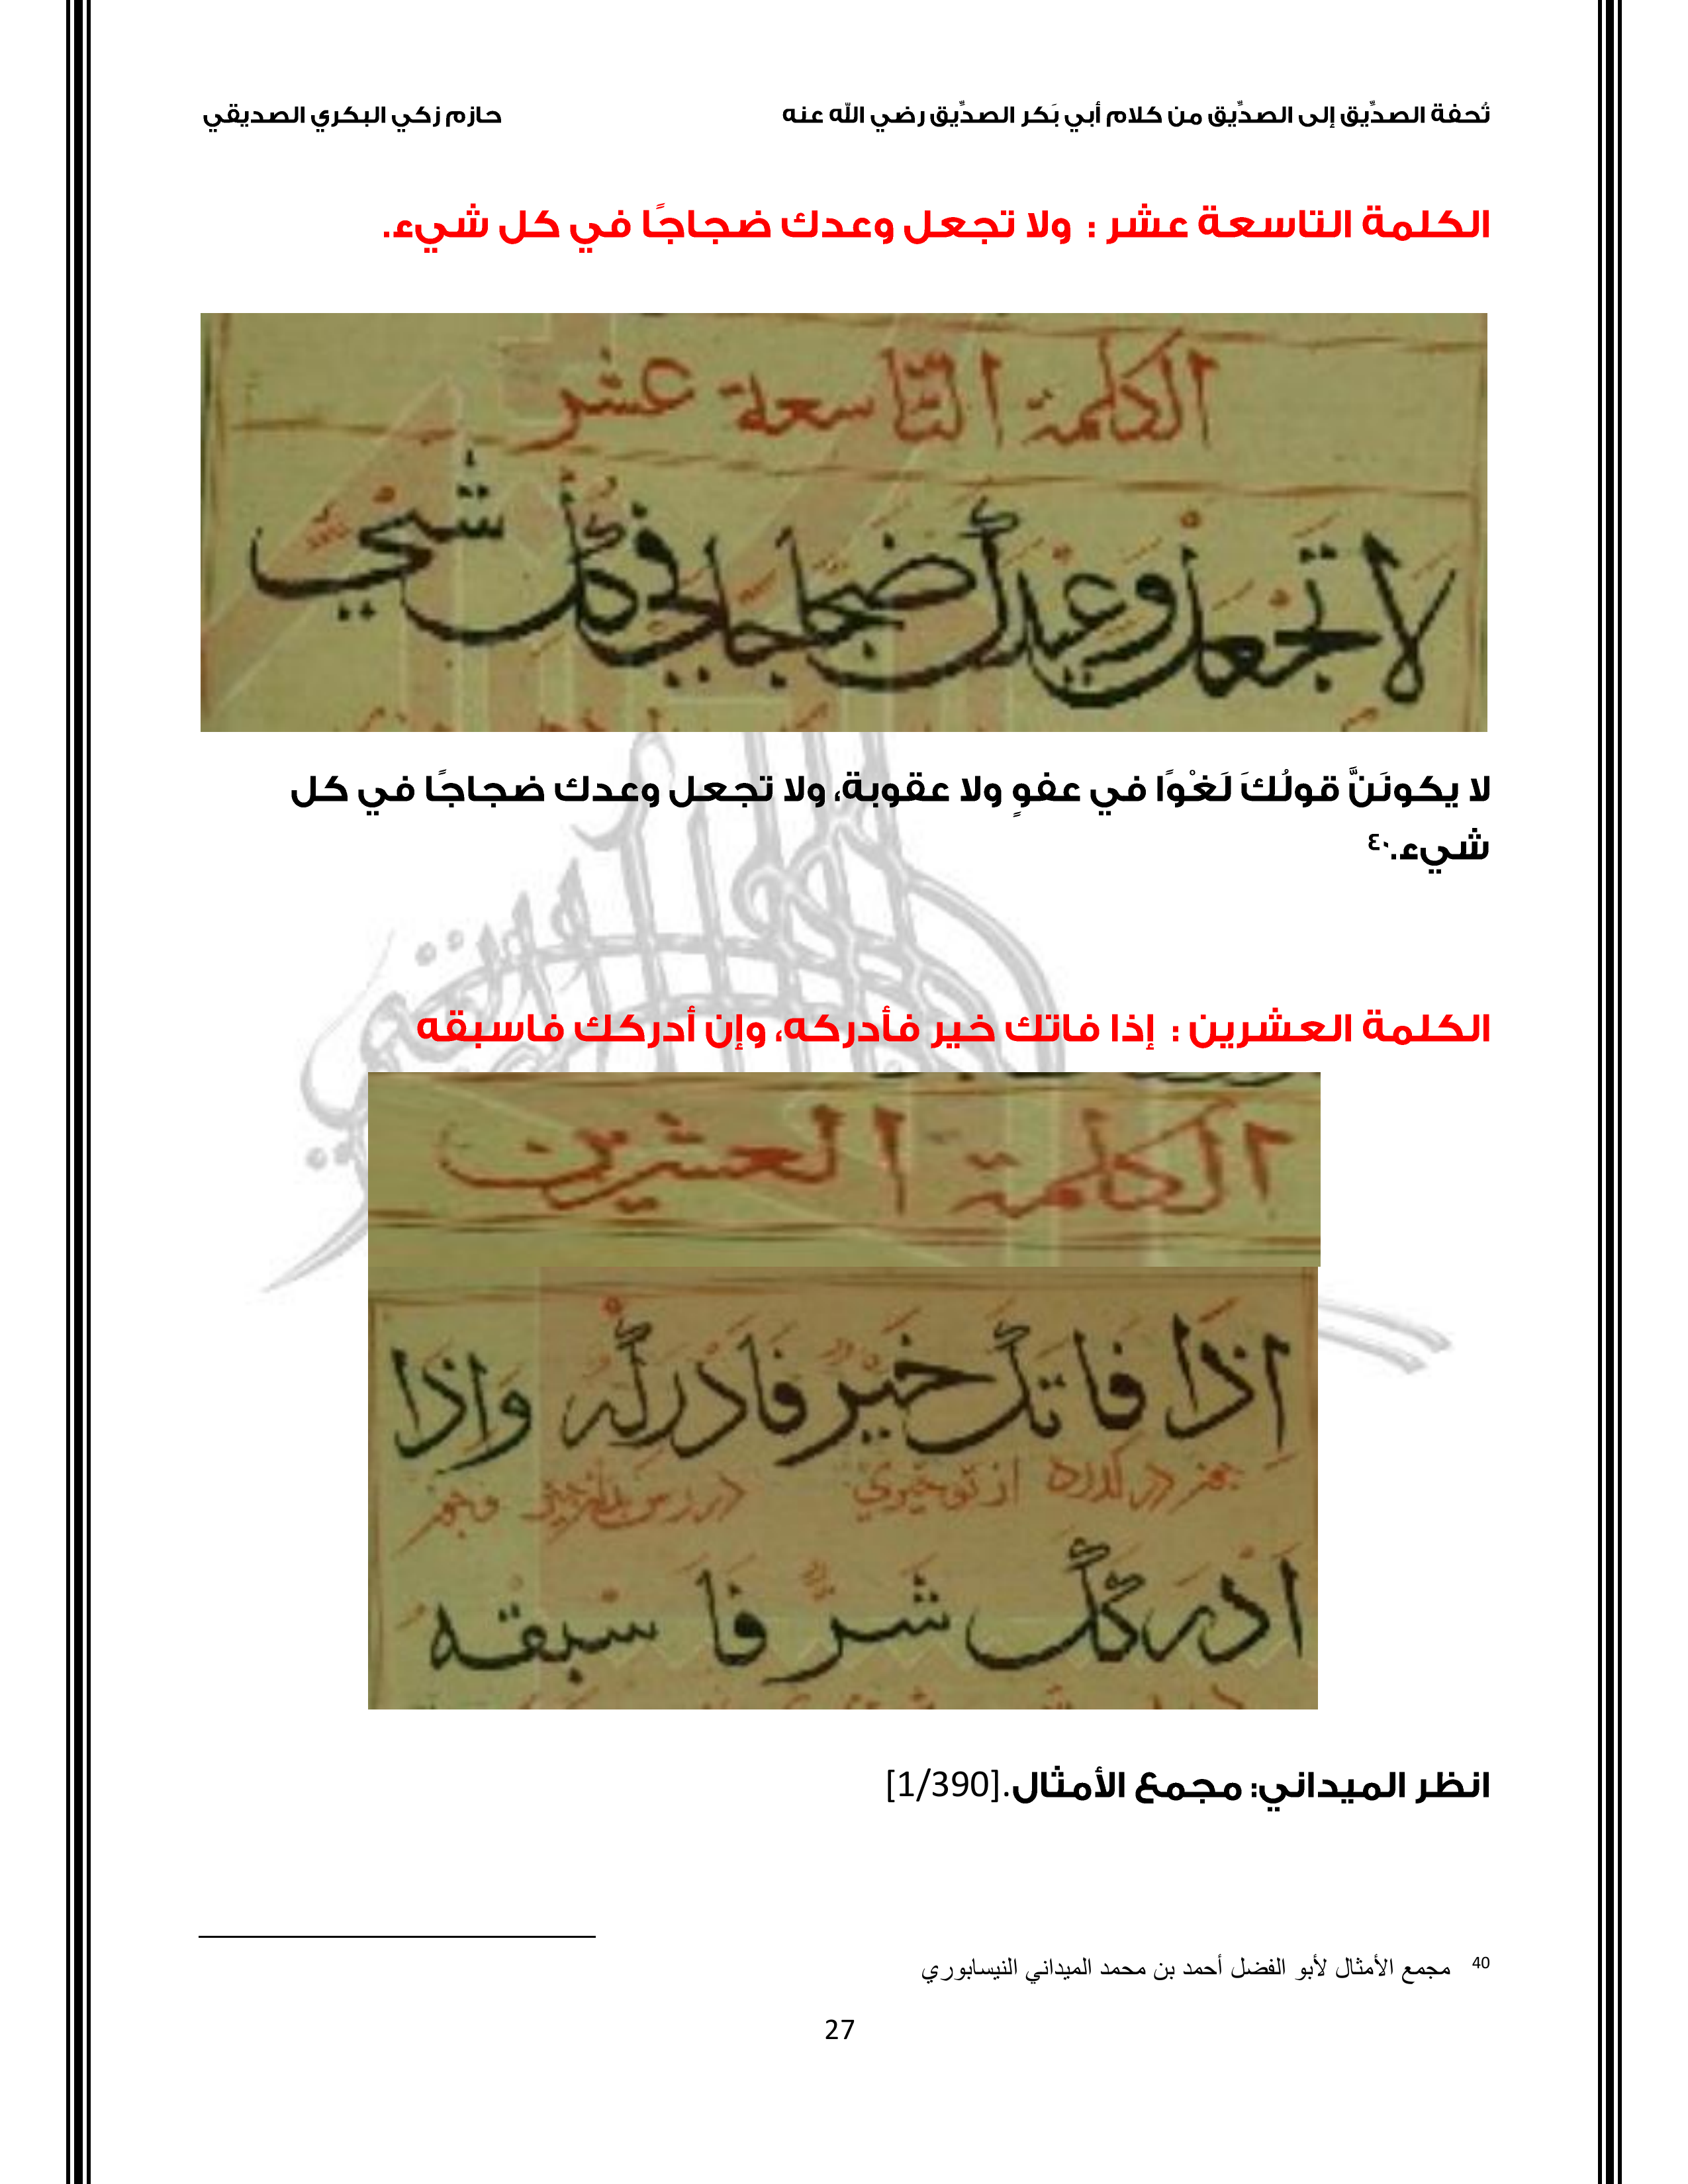 تُحفة الصدِّيق إلى الصدِّيق من كلام أبي بَكر الصدِّيق رضي الله عنه حازم زكي البكري الصديقي
الكلمة التاسعة عشر : ولا تجعل وعدك ضجاجًا في كل شيء.
الكلمة التاسعة عشر
لا تجعل وعيدك ضجاجا في كل شيء
لا يكونَنَّ قولُكَ لَغْوًا في عفوٍ ولا عقوبة، ولا تجعل وعدك ضجاجًا في كل
شيء.٤٠
الكلمة العشرين : إذا فاتك خير فأدركه، وإن أدركك فاسبقه
الكلمة العشرين
اذا فاتك خير فادركه واذا
ادركك شر فاسبقه
انظر الميداني: مجمع الأمثال.[1/390]
40 مجمع الأمثال لأبو الفضل أحمد بن محمد الميداني النيسابوري
27